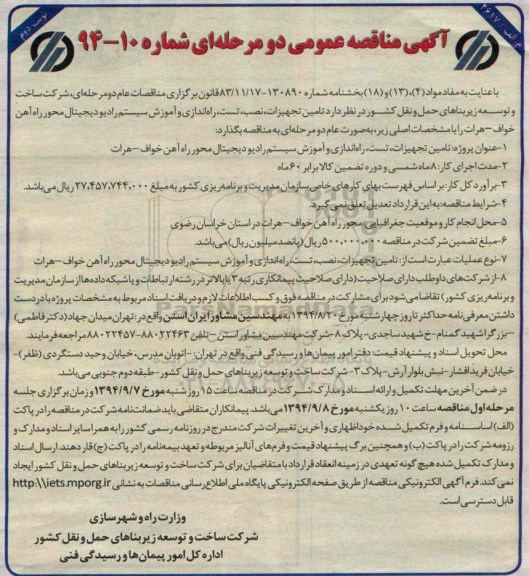 م الف / ۲۶۱۷
نوبت دوم
آگهی مناقصه عمومی دو مرحله‌ای شماره ۱۰-۹۴
باعنایت به مفاد مواد (۴)، (۱۳) و (۱۸) بخشنامه شماره ۱۳۰۸۹۰-۸۳/۱۱/۱۷ قانون برگزاری مناقصات عام دو مرحله‌ای، شرکت ساخت
و توسعه زیربناهای حمل و نقل کشور در نظر دارد تامین تجهیزات، نصب، تست، راه‌اندازی و آموزش سیستم رادیو دیجیتال محور راه آهن
خواف-هرات را با مشخصات اصلی زیر، به صورت عام دو مرحله‌ای به مناقصه بگذارد:
۱-عنوان پروژه: تامین تجهیزات، تست، راه‌اندازی و آموزش سیستم رادیو دیجیتال محور راه آهن خواف-هرات
۲-مدت اجرای کار: ۸ ماه شمسی و دوره تضمین کالا برابر ۶۰ ماه
۳-برآورد کل کار: بر اساس فهرست بهای کارهای خاص سازمان مدیریت و برنامه ریزی کشور به مبلغ ۲۷،۴۵۷،۷۴۴،۰۰۰ ریال می‌باشد.
۴-شرایط مناقصه: به این قرارداد تعدیل تعلق نمی‌گیرد.
۵-محل انجام کار و موقعیت جغرافیایی: محور راه آهن خواف-هرات در استان خراسان رضوی
۶-مبلغ تضمین شرکت در مناقصه ۵۰۰،۰۰۰،۰۰۰ ریال (پانصد میلیون ریال) می‌باشد.
۷-نوع عملیات عبارت است از: تامین تجهیزات، نصب، تست، راه‌اندازی و آموزش سیستم رادیو دیجیتال محور راه آهن خواف-هرات
۸-از شرکت‌های داوطلب دارای صلاحیت (دارای صلاحیت پیمانکاری رتبه ۳ یا بالاتر در رشته ارتباطات و یا شبکه داده‌ها از سازمان مدیریت
و برنامه ریزی کشور) تقاضا می‌شود برای مشارکت در مناقصه فوق و کسب اطلاعات لازم و دریافت اسناد مربوط به مشخصات پروژه با در دست
داشتن معرفی نامه حداکثر تا روز چهارشنبه مورخ ۱۳۹۴/۸/۲۰ به مهندسین مشاور ایران استن واقع در: تهران میدان جهاد (دکتر فاطمی)
-بزرگراه شهید گمنام-خ شهید ساجدی-پلاک ۸-شرکت مهندسین مشاور استن-تلفن ۸۸۰۲۲۴۶۳-۸۸۰۲۲۴۵۷ مراجعه فرمایند.
محل تحویل اسناد و پیشنهاد قیمت: دفتر امور پیمان‌ها و رسیدگی فنی واقع در تهران: -اتوبان مدرس، خیابان وحید دستگردی (ظفر)-
خیابان فرید افشار-نبش بلوار آرش-پلاک ۳-شرکت ساخت و توسعه زیربناهای حمل و نقل کشور-طبقه دوم جنوبی می‌باشد.
در ضمن آخرین مهلت تکمیل و ارائه اسناد و مدارک شرکت در مناقصه ساعت ۱۵ روز شنبه مورخ ۱۳۹۴/۹/۷ و زمان برگزاری جلسه
مرحله اول مناقصه ساعت ۱۰ روز یکشنبه مورخ ۱۳۹۴/۹/۸ می‌باشد. پیمانکاران متقاضی باید ضمانت‌نامه شرکت در مناقصه را در پاکت
(الف) اساسنامه و فرم تکمیل شده خوداظهاری و آخرین تغییرات شرکت مندرج در روزنامه رسمی کشور را به همراه سایر اسناد و مدارک و
رزومه شرکت را در پاکت (ب) و همچنین برگ پیشنهاد قیمت و فرم‌های آنالیز مربوطه و تعهد بیمه‌نامه را در پاکت (ج) قرار دهند. ارسال اسناد
و مدارک تکمیل شده هیچ گونه تعهدی در زمینه انعقاد قرارداد با متقاضیان برای شرکت ساخت و توسعه زیربناهای حمل و نقل کشور ایجاد
نمی‌کند. فرم آگهی الکترونیکی مناقصه از طریق صفحه الکترونیکی پایگاه ملی اطلاع رسانی مناقصات به نشانی http:\\iets.mporg.ir
قابل دسترسی است.
وزارت راه و شهرسازی
شرکت ساخت و توسعه زیربناهای حمل و نقل کشور
اداره کل امور پیمان‌ها و رسیدگی فنی